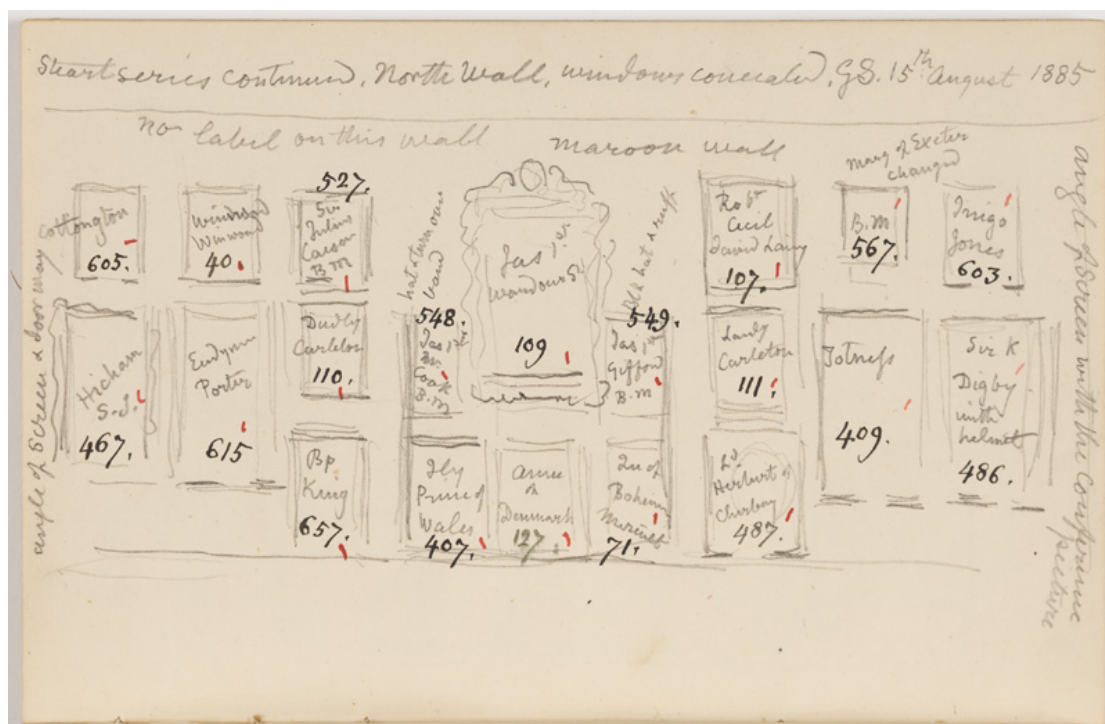 Stuart series continued, North Wall, windows concealed, GS. 15th August 1885
no label on this wall
maroon wall
Marq of Exeter
changed
angle of Screen & doorway
angle of Screen with the Conference
picture
Cottongton
605.
Winwood
40.
527.
Sir
Julius
Caesar
B.M
hat & turn over
band
Jas, 1st
Wardour St
109
hat & ruff
Robt
Cecil
David Laing
107.
B.M
567.
Inigo
Jones
603.
Hicham
S.J.
467.
Endymn
Porter
615
Dudley
Carleton
110.
548.
Jas, 1st
B.M
549.
Jas, 1st
Giffard
B.M
Lady
Carleton
111.
Totness
409.
Sir K
Digby
with
helmet
486.
Bp
King
657.
Hy
Prince of
Wales
407.
Anne
of
Denmark
127.
Qu of
Bohemia
71.
Ld
Herbert of
Chirbury
487.